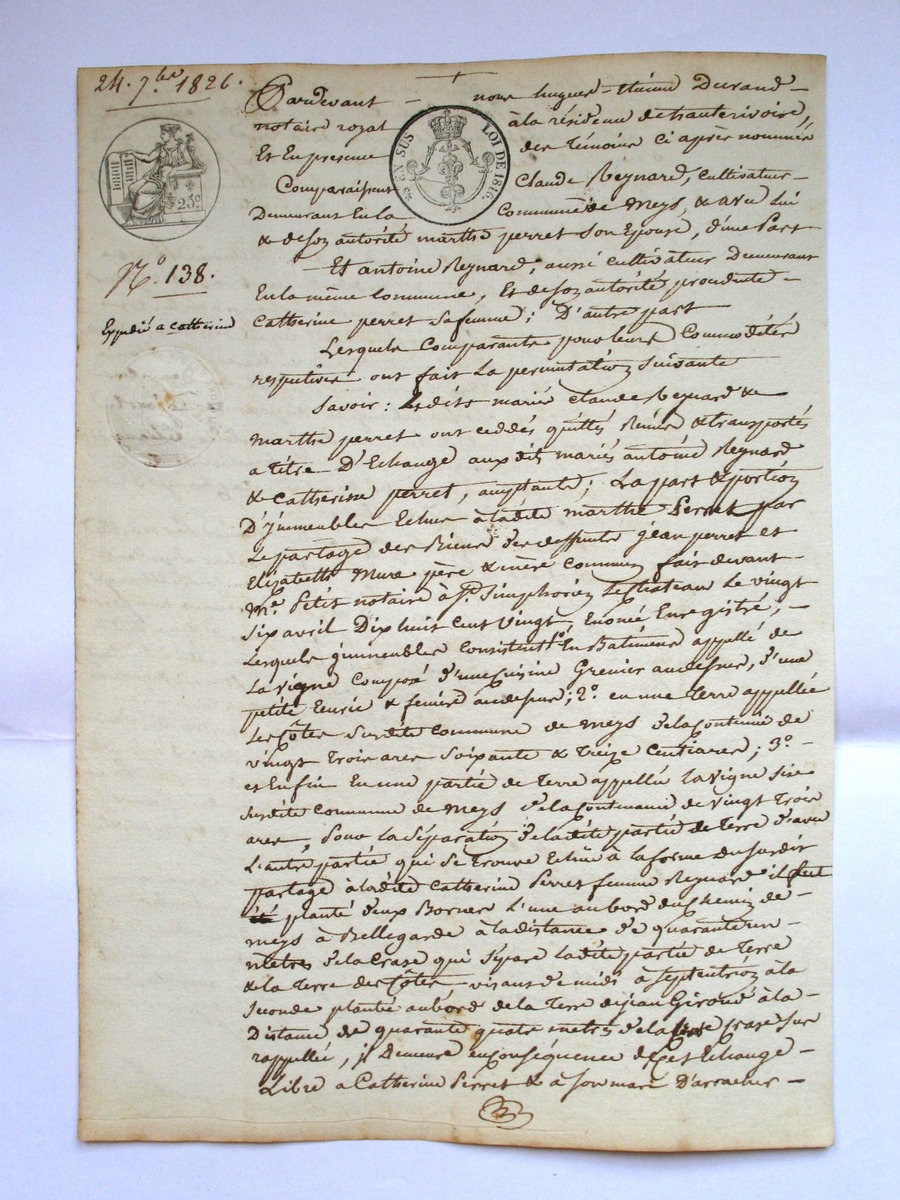 24. 7.bre 1826.
Pardevant nous hugues - Etienne Durand -
notaire royal à la résidence de hauterivoire,
Et En presence des témoins ci après nommés
¼ EN SUS LOI DE 1816.
25c
Comparaissent Claude Reynard, cultivateur -
Demeurant En la Commune de Meys, & avec Lui
& de son autorité marthe perret Son Epouse, d'une Part
N.o 138.
Et antoine Reynard, aussi cultivateur Demeurant
En la même Commune, Et de son autorité procedente -
Expédié a catherine
Catherine perret Sa femme; D'autre part
Lesquels Comparants pour leurs Commodités
respectives ont fait La permutation Suivante
Savoir: Lesdits mariés claude Reynard &
marthe perret ont ceddés quittés Remis & transportés
a titre D'Echange aux dits mariés antoine Reynard
& Catherine perret, acceptants; La part & portion
D'immeubles Echue à ladite marthe Perret par
Le partage des Biens des deffunts jean perret et
Elisabeth Mure père & mère communs fait devant -
Me. Petit notaire à St. Simphorien Le chateau Le vingt
Six avril Dix huit Cent Vingt, Enoncé Enregistré, -
Lesquels immeubles Consistent 1o. En Batiment appellé de
La vigne Composé d'une Cuisine Grenier au dessus, d'une
petite Ecurie & feniere au dessus; 2o. en une Terre appellée
Les Côtes Surdite commune de Meys de la Contenue de
vingt Trois ares Soixante & Treize Centiares; 3o. -
et Enfin En une partie de Terre appellée La vigne Sise
Surdite Commune de Meys de la Contenance de Vingt Trois
ares, pour La Séparation de ladite partie de Terre d'avec
L'autre partie qui Se trouve Echue à la forme du Susdit
partage à ladite Catherine Perret femme Reynard il fut
planté deux Bornes L'une au bord du Chemin de -
meys à Bellegarde à la distance de quarante un -
mètres de la Crase qui Sépare Ladite partie de Terre
& la Terre des Côtes visant de midi à Septentrion & la
Seconde planté au bord de la Terre de jean Giroud à la -
Distance de quarante quatre metres de la crase Sus
rappellée, il Demeure en Conséquence de cet Echange -
Libre a Catherine Perret & à Son mari D'arracher -